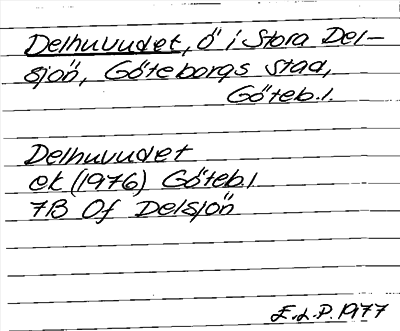 Delhuvudet, ö i Stora Del-
sjön, Göteborgs stad,
Göteb.l.
Delhuvudet
ek (1976) Göteb.l
7B 0f Delsjön
E.L.P. 1977